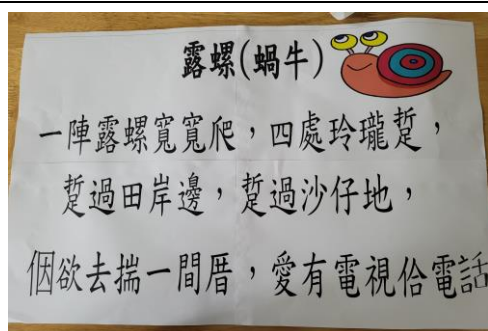 露螺(蝸牛)
一陣露螺寬寬爬，四處玲瓏踅，
踅過田岸邊，踅過沙仔地，
個欲去揣一間厝，愛有電視佮電話